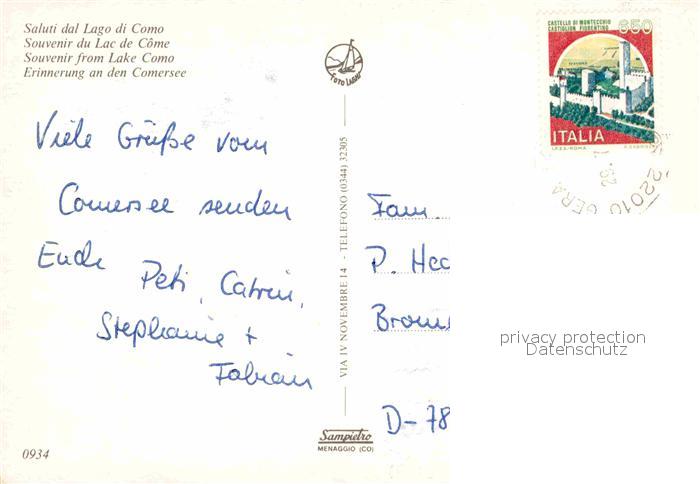 Saluti dal Lago di Como
Souvenir du Lac de Côme
Souvenir from Lake Como
Erinnerung an den Comersee
Viele Grüße vom
Comersee senden
Euch
Peti, Catrin,
Stephanie +
Fabian
0934
FOTO LAGHI
VIA IV NOVEMBRE 14 - TELEFONO (0344) 32305
Sampietro
MENAGGIO (CO)
CASTELLO DI MONTECCHIO
CASTIGLION FIORENTINO
650
ITALIA
I.P.Z.S. - ROMA
22010 GERA
Fam.
P.
D-78
privacy protection
Datenschutz